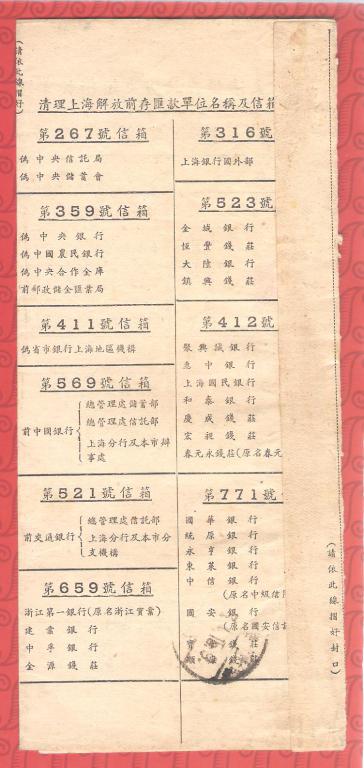 (請依此線摺好)
清理上海解放前存匯款單位名稱及信箱
第267號信箱
偽中央信託局
偽中央儲蓄會
第359號信箱
偽中央銀行
偽中國農民銀行
偽中央合作金庫
前郵政儲金匯業局
第411號信箱
偽省市銀行上海地區機構
第569號信箱
前中國銀行
總管理處儲蓄部
總管理處信託部
上海分行及本市辦
事處
第521號信箱
前交通銀行
總管理處信託部
上海分行及本市分
支機構
第659號信箱
浙江第一銀行(原名浙江實業)
建業銀行
中孚銀行
金源錢莊
第316號
上海銀行國外部
第523號
金城銀行
恆豐錢莊
大陸銀行
鎮興錢莊
第412號
聚興誠銀行
惠中銀行
上海國民銀行
和泰銀行
慶成錢莊
宏昶錢莊
春元永錢莊(原名春元
第771號
國華銀行
統原銀行
永亨銀行
東萊銀行
中信銀行
(原名中級信
國安銀行
(原名國安信
錢莊
錢莊
(請依此線摺好封口)